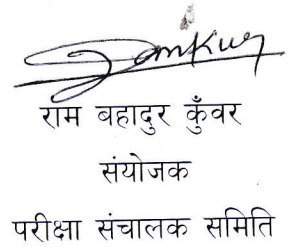 राम बहादुर कुँवर
संयोजक
परीक्षा संचालक समिति